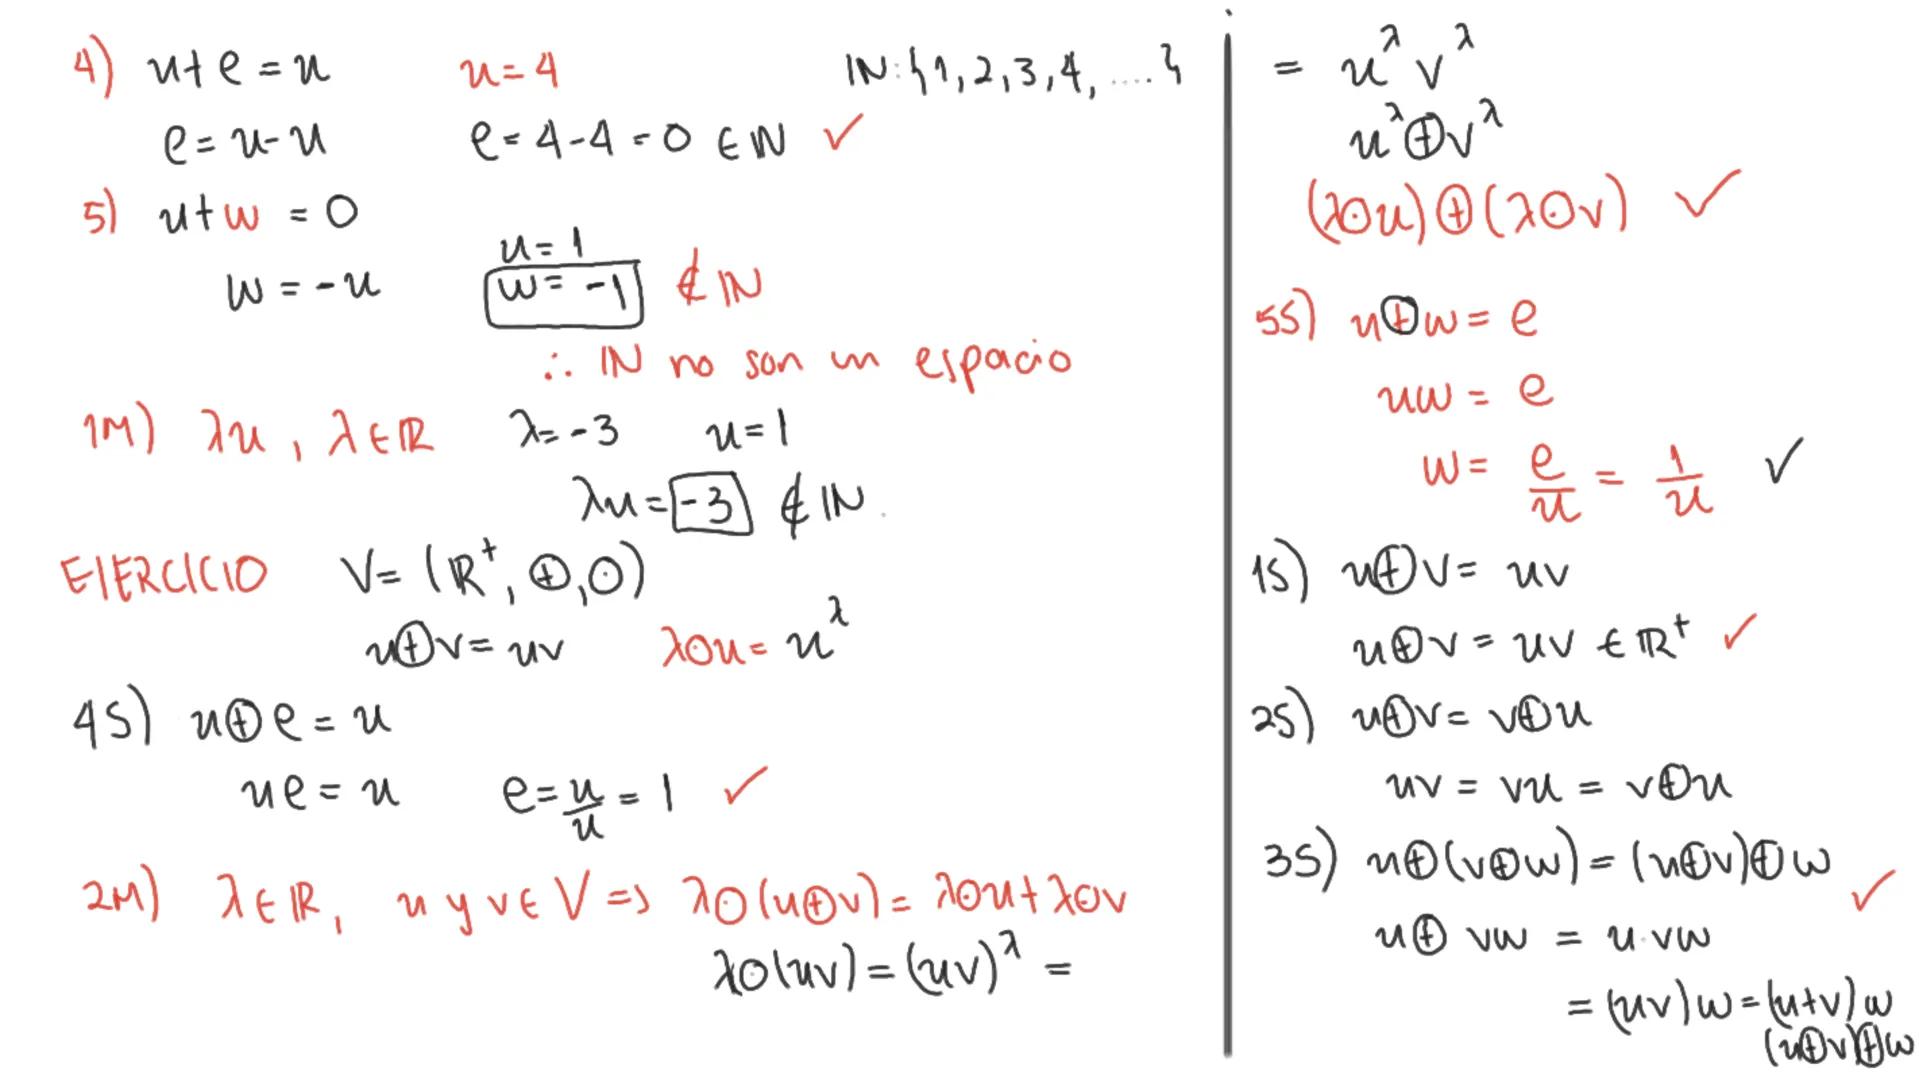 4) u+e=u u=4 IN:{1,2,3,4,....}
e=u-u e=4-4=0 ∈ IN ✓
5) u+w=0
u=1
w=-u w=-1 ∉ IN
∴ IN no son un espacio
1M) λu, λ∈IR λ=-3 u=1
λu=-3 ∉ IN.
EJERCICIO V=(IR⁺,⊕,⊙)
u⊕v=uv λ⊙u=u^λ
4S) u⊕e=u
ue=u e=u/u=1 ✓
2M) λ∈IR, u y v∈V => λ⊙(u⊕v)=λ⊙u+λ⊙v
λ⊙(uv)=(uv)^λ=
= u^λ v^λ
u^λ⊕v^λ
(λ⊙u)⊕(λ⊙v) ✓
5S) u⊕w=e
uw=e
w=e/u=1/u ✓
1S) u⊕v=uv
u⊕v=uv∈IR⁺ ✓
2S) u⊕v=v⊕u
uv=vu=v⊕u
3S) u⊕(v⊕w)=(u⊕v)⊕w ✓
u⊕ vw = u·vw
=(uv)w=(u+v)w
(u⊕v)⊕w